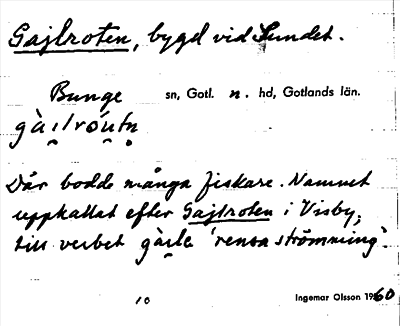 Gajlroten, bygd vid Sundet.
Bunge sn, Gotl. n. hd, Gotlands län.
gàı̯lróu̯tn̥
Där bodde många fiskare. Namnet
uppkallat efter Gajlroten i Visby,
till verbet gàı̯la 'rensa strömming'.
10 Ingemar Olsson 1960